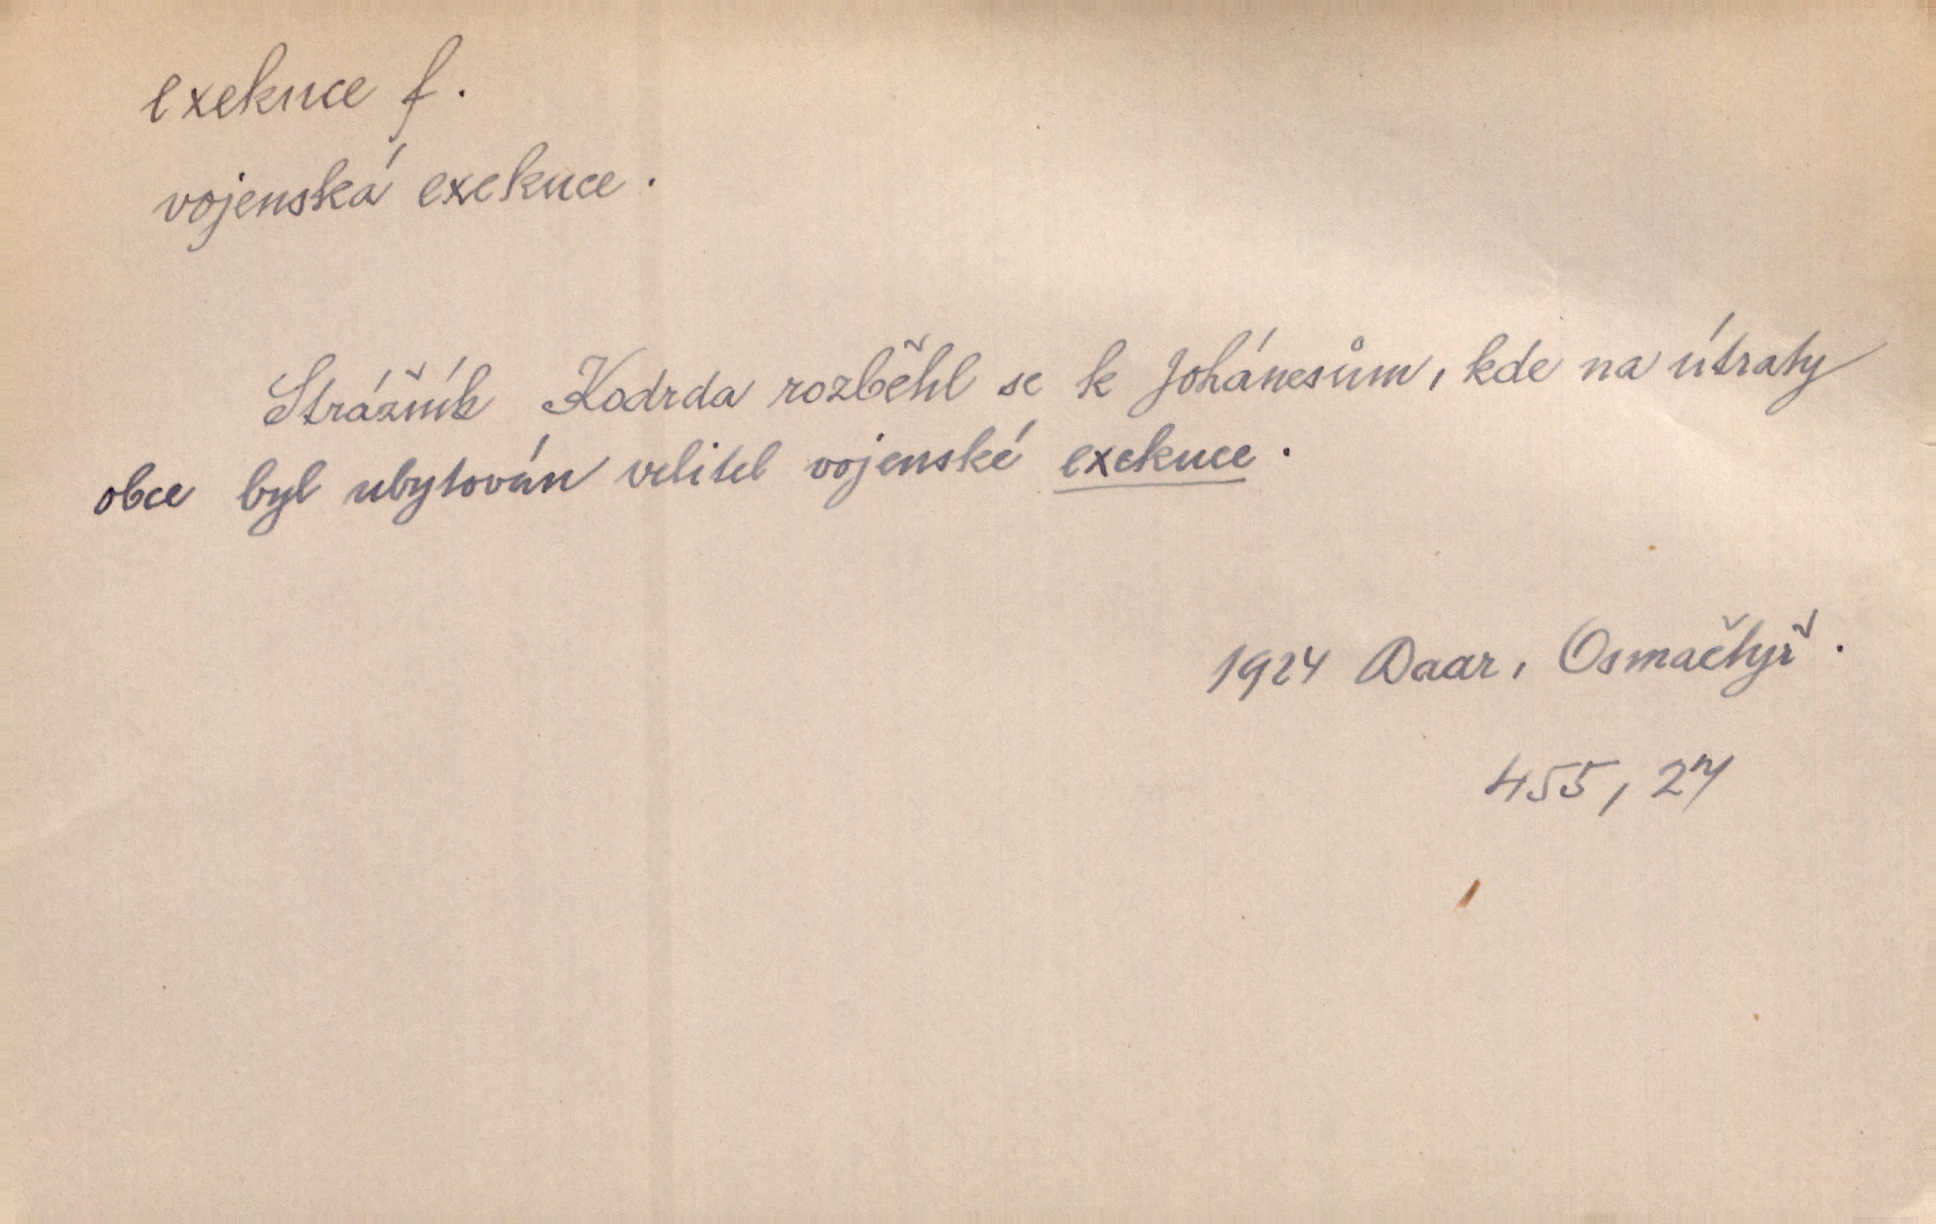 exekuce f.
vojenská exekuce.
Strážník Kodrda rozběhl se k Johánesům, kde na útraty
obce byl ubytován velitel vojenské exekuce.
1924 Daar, Osmačtyř.
455, 27